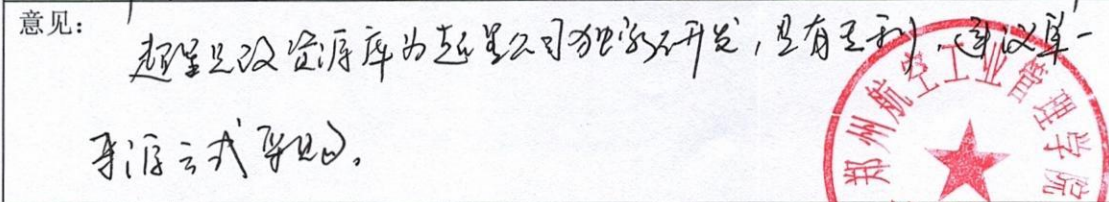 意见:
超星思政资源库为超星公司独家研发,且有专利,建议单一
来源方式采购。
郑州航空工业管理学院